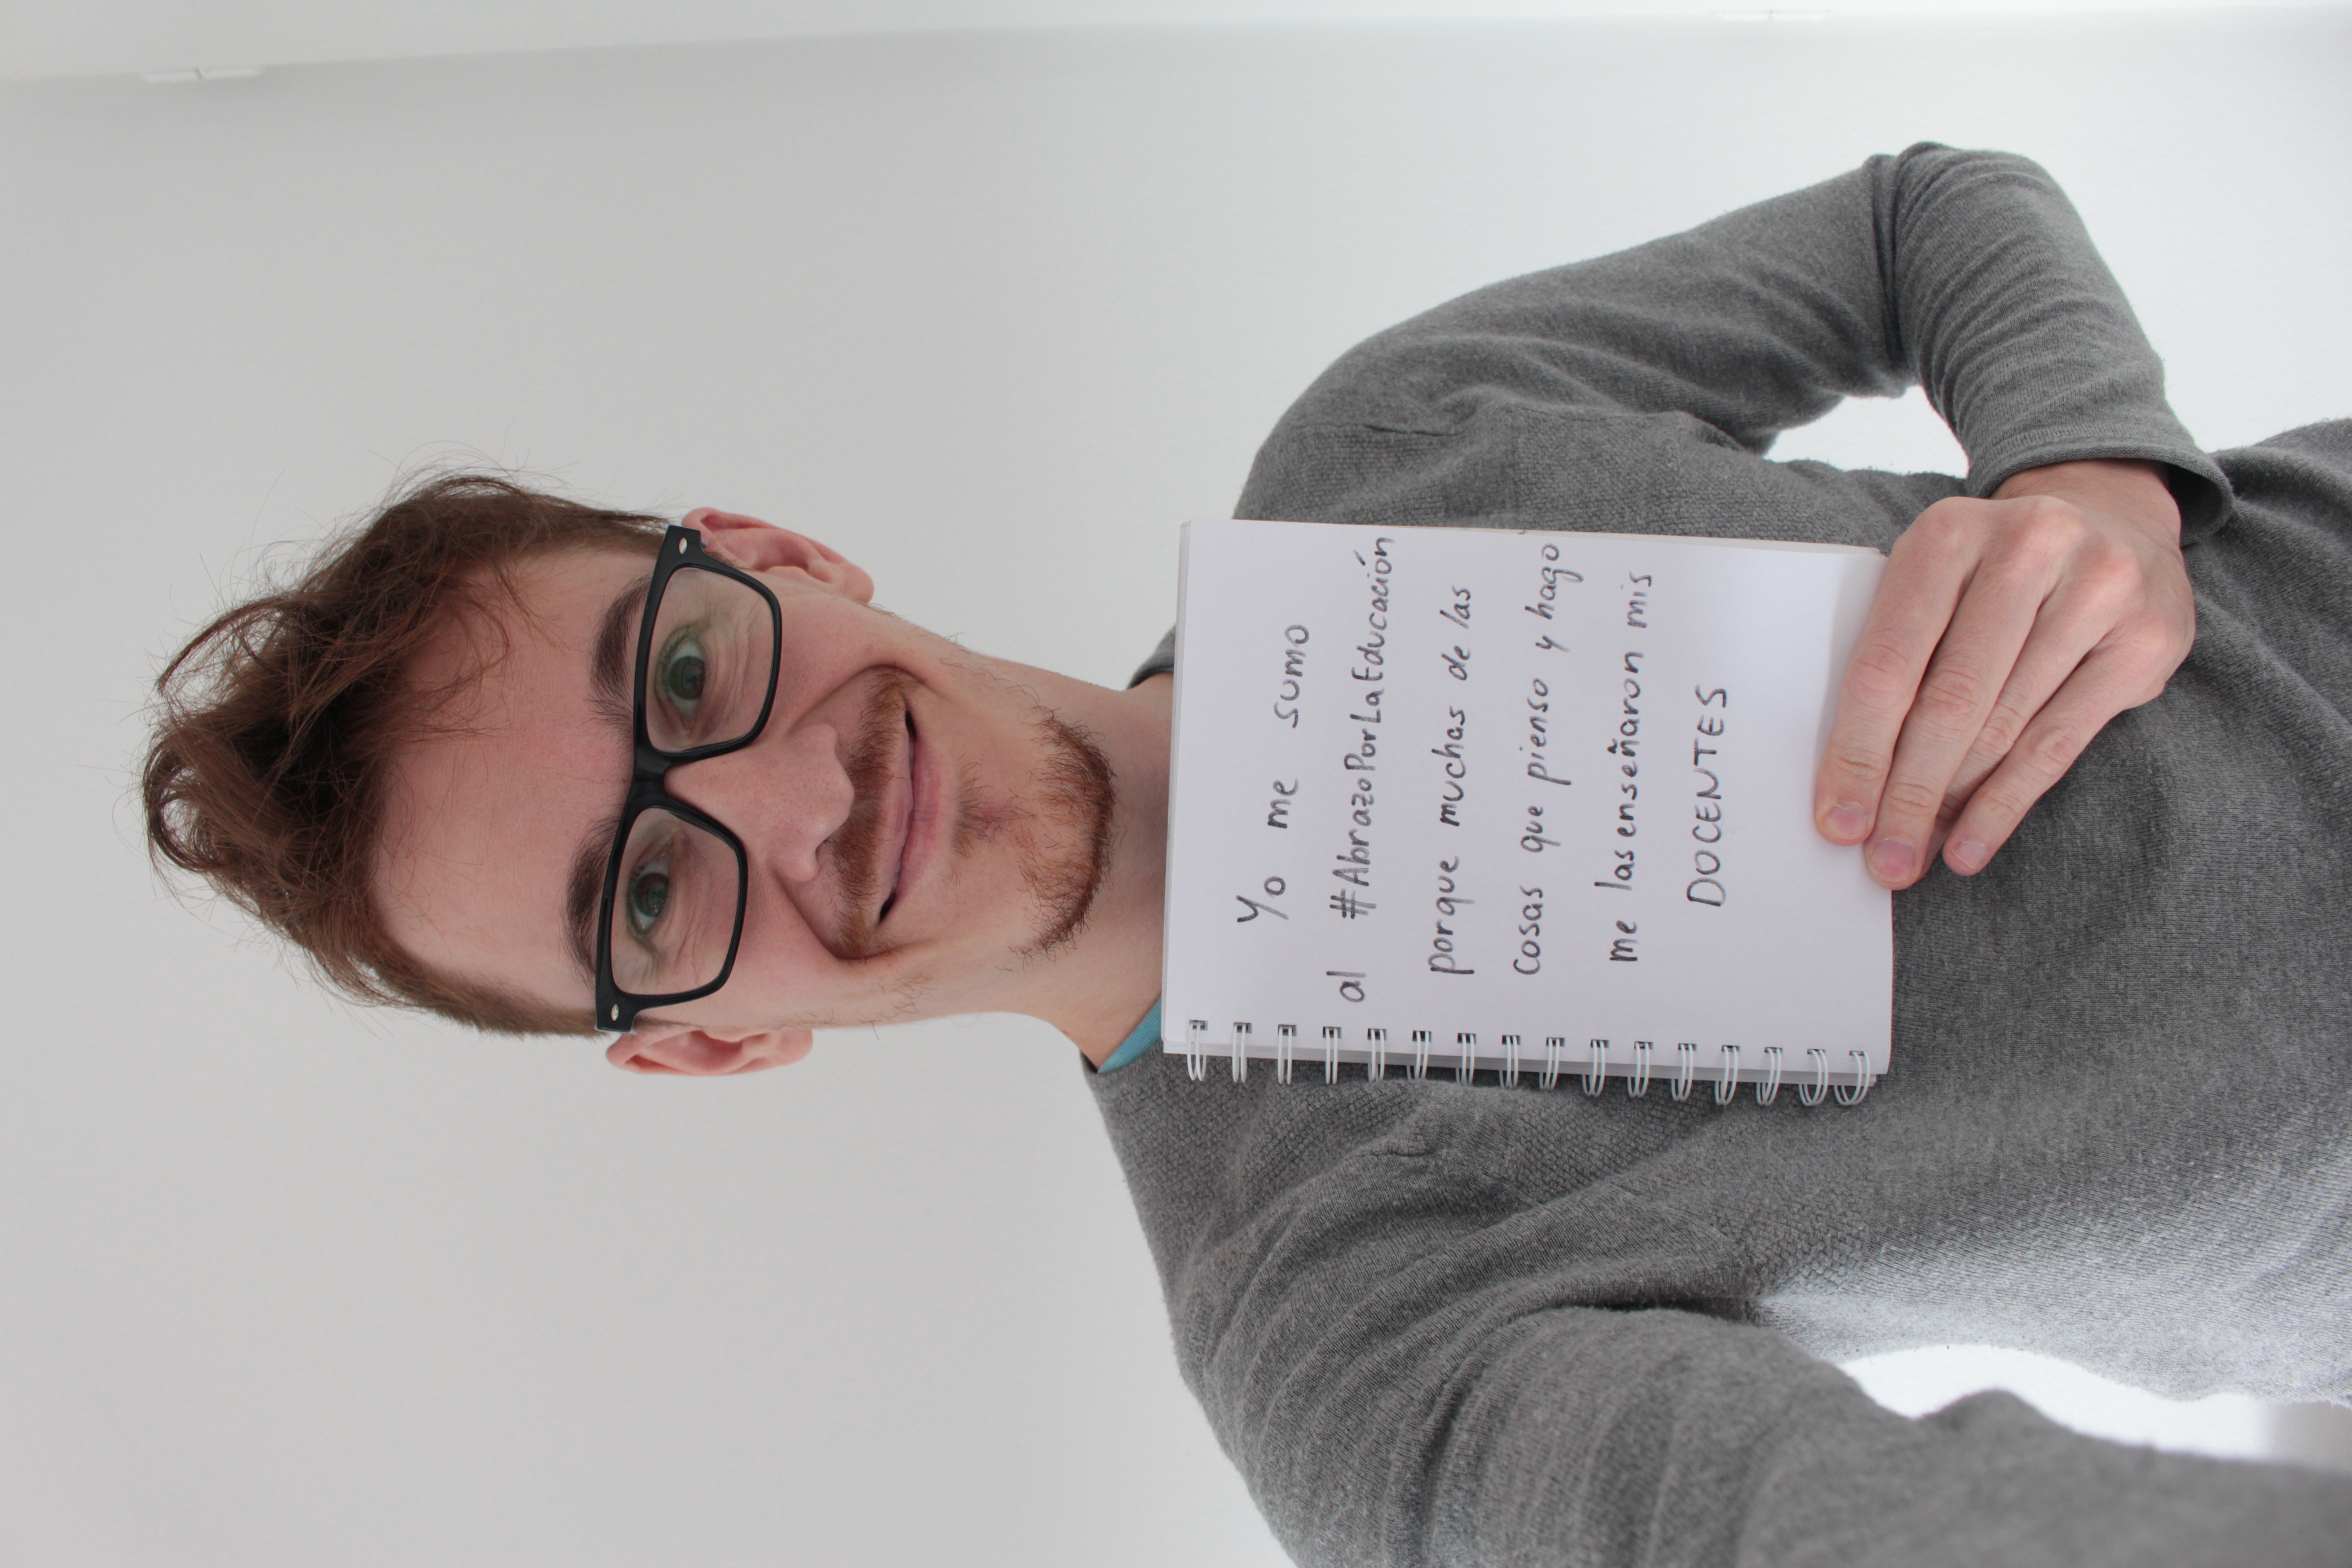 Yo me sumo
al #AbrazoPorLaEducación
porque muchas de las
cosas que pienso y hago
me las enseñaron mis
DOCENTES